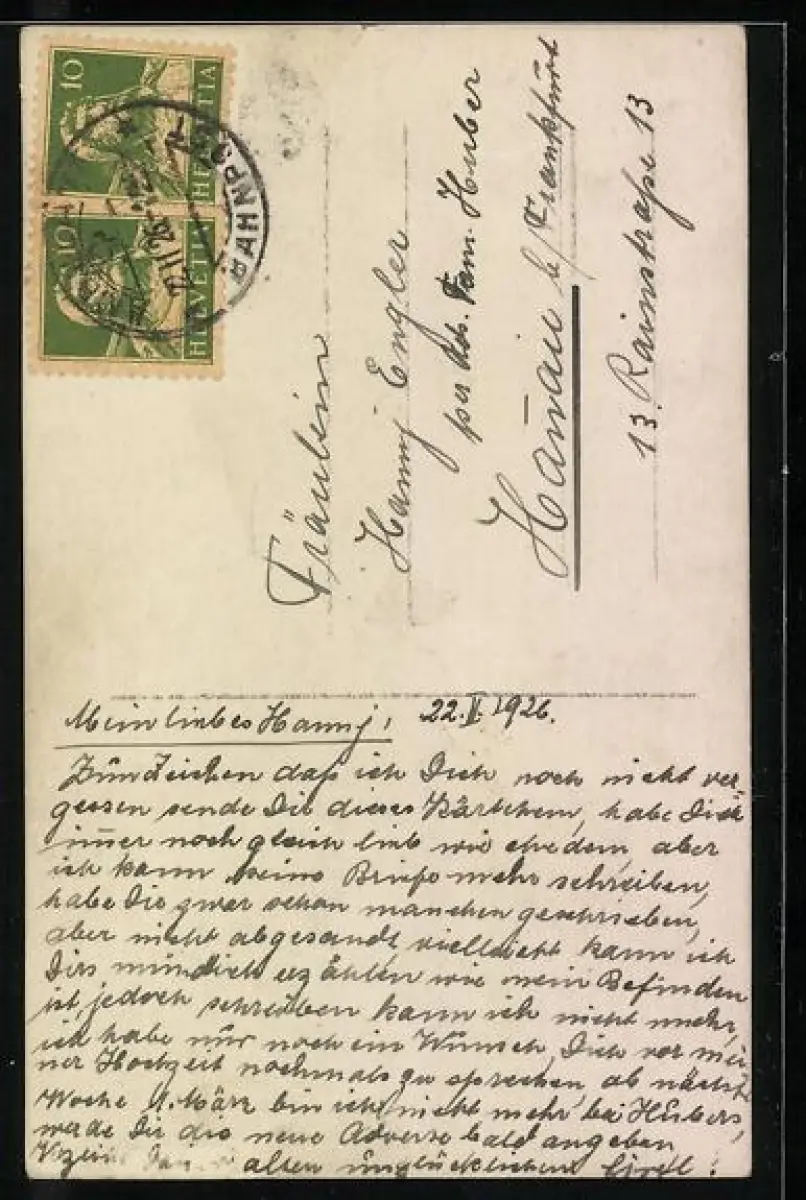 10
HELVETIA
10
HELVETIA
BAHNPO
22.II.26
Fräulein
Hanny Engler
per Adr. Fam. Huber
Hanau b/Frankfurt
13. Rainstraße 13
Mein liebes Hanny! 22.II.1926.
Zum Zeichen daß ich Dich noch nicht ver=
gessen sende Dir dieses Kärtchen, habe Dich
immer noch gleich lieb wie ehedem, aber
ich kann keine Briefe mehr schreiben,
habe Dir zwar schon manchen geschrieben,
aber nicht abgesandt, vielleicht kann ich
Dirs mündlich erzählen wie mein Befinden
ist, jedoch schreiben kann ich nicht mehr,
ich habe nur noch ein Wunsch, Dich vor mei
ner Hochzeit nochmals zu sprechen, ab nächste
Woche 1. März bin ich nicht mehr bei Hubers,
werde Dir die neue Adresse bald angeben
alten unglücklichen